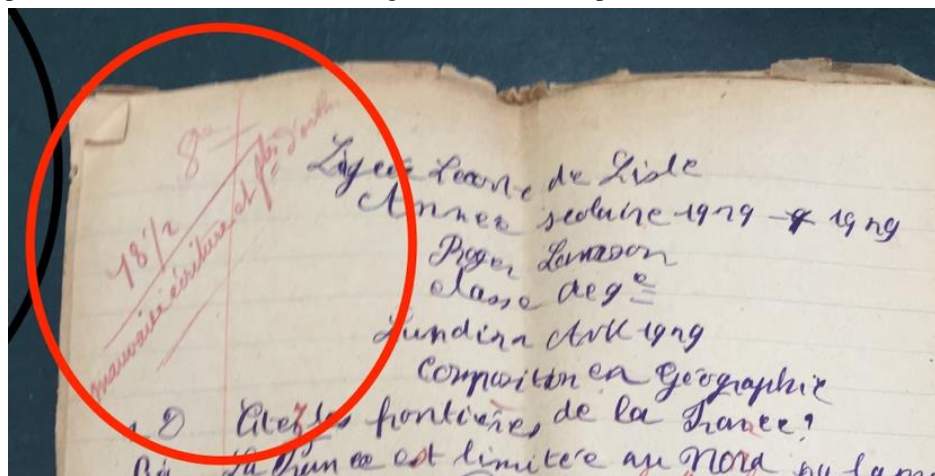 8e
18 1/2
mauvaise écriture et ftes d'orth.
Lycée Leconte de Lisle
Année scolaire 1929 - 1929
Roger
classe de 9e
Lundi 1929
Composition en Géographie
1.° Citez les frontières de la France?
La France est limitée au Nord